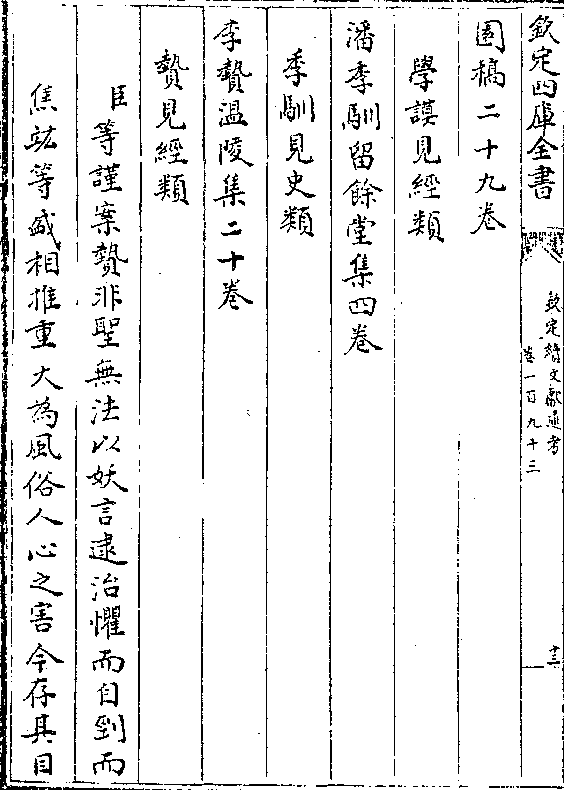 欽定四庫全書
欽定續文獻通考
卷一百九十三
十三
園稿二十九卷
學謨見經類
潘季馴留餘堂集四卷
季馴見史類
李贄溫陵集二十卷
贄見經類
臣等謹案贄非聖無法以妖言逮治懼而自剄而
焦竑等盛相推重大為風俗人心之害今存其目